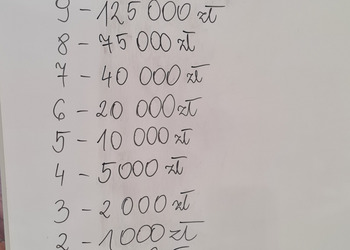 9 - 125 000 zł
8 - 75 000 zł
7 - 40 000 zł
6 - 20 000 zł
5 - 10 000 zł
4 - 5000 zł
3 - 2 000 zł
2 - 1000 zł